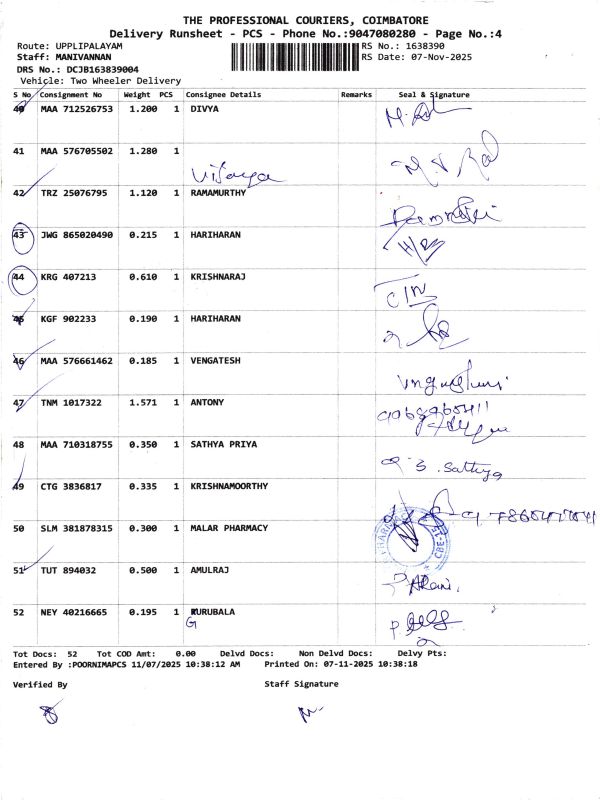 THE PROFESSIONAL COURIERS, COIMBATORE
Delivery Runsheet - PCS - Phone No.:9047080280 - Page No.:4
Route: UPPLIPALAYAM RS No.: 1638390
Staff: MANIVANNAN RS Date: 07-Nov-2025
DRS No.: DCJB163839004
Vehicle: Two Wheeler Delivery
S No Consignment No Weight PCS Consignee Details Remarks Seal & Signature
40 MAA 712526753 1.200 1 DIVYA
41 MAA 576705502 1.280 1
Vijaya
42 TRZ 25076795 1.120 1 RAMAMURTHY
43 JWG 865020490 0.215 1 HARIHARAN
44 KRG 407213 0.610 1 KRISHNARAJ
45 KGF 902233 0.190 1 HARIHARAN
46 MAA 576661462 0.185 1 VENGATESH
47 TNM 1017322 1.571 1 ANTONY
48 MAA 710318755 0.350 1 SATHYA PRIYA
S. Sathya
49 CTG 3836817 0.335 1 KRISHNAMOORTHY
50 SLM 381878315 0.300 1 MALAR PHARMACY
51 TUT 894032 0.500 1 AMULRAJ
52 NEY 40216665 0.195 1 KURUBALA
G
Tot Docs: 52 Tot COD Amt: 0.00 Delvd Docs: Non Delvd Docs: Delvy Pts:
Entered By :POORNIMAPCS 11/07/2025 10:38:12 AM Printed On: 07-11-2025 10:38:18
Verified By Staff Signature